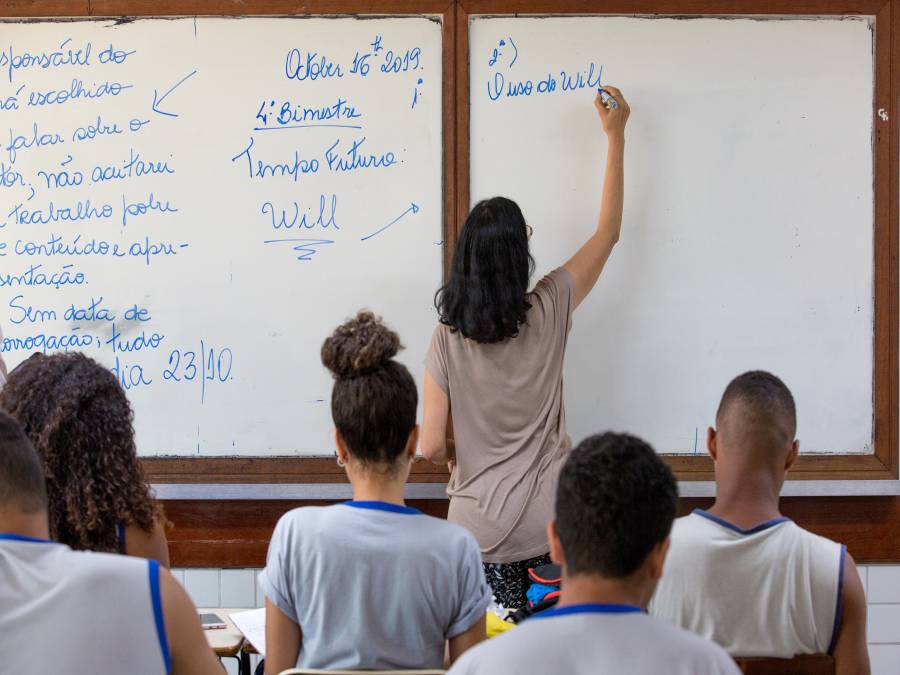 sponsável do
á escolhido
falar sobre o
tor; não acitarei
trabalho pobre
e conteúdo e apre-
sentação.
Sem data de
orrogação; tudo
dia 23|10.
October 16th 2019.
1ª
4º Bimestre
Tempo Futuro:
Will
2ª)
O uso do Will